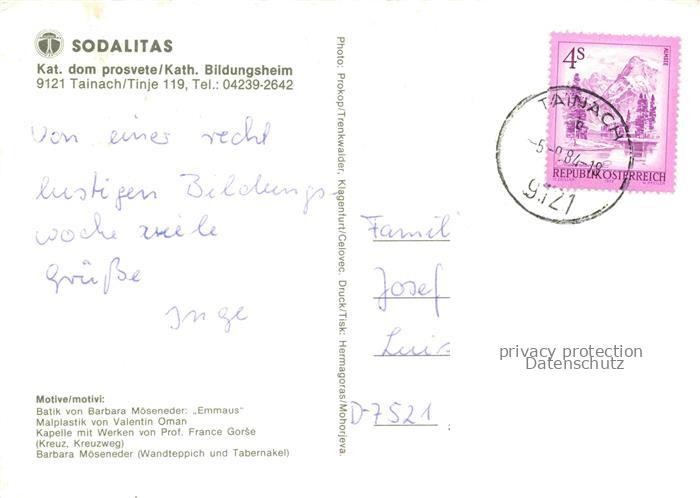 SODALITAS
Kat. dom prosvete/Kath. Bildungsheim
9121 Tainach/Tinje 119, Tel.: 04239-2642
Von einer recht
lustigen Bildungs-
woche viele
Grüße
Inge
Motive/motivi:
Batik von Barbara Möseneder: „Emmaus“
Malplastik von Valentin Oman
Kapelle mit Werken von Prof. France Gorše
(Kreuz, Kreuzweg)
Barbara Möseneder (Wandteppich und Tabernakel)
Photo: Prokop/Trenkwalder, Klagenfurt/Celovec. Druck/Tisk: Hermagoras/Mohorjeva.
4s
ALMSEE
REPUBLIK ÖSTERREICH
TAINACH
84-18
9121
Famil
Josef
D-7521
privacy protection
Datenschutz